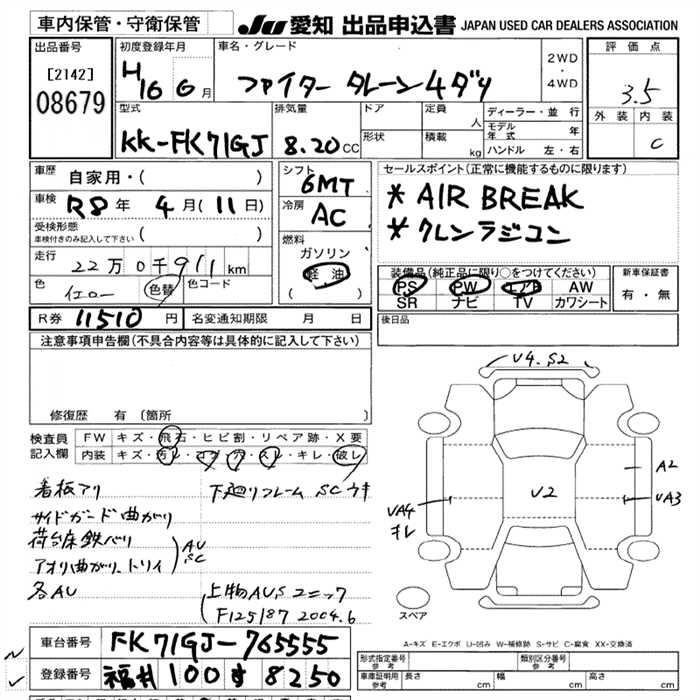 車内保管・守衛保管
JU 愛知 出品申込書 JAPAN USED CAR DEALERS ASSOCIATION
出品番号
[2142]
08679
初度登録年月
H16 6月
車名・グレード
ファイター クレーン4ダリ
2WD
・
4WD
評価点
3.5
外装 内装
C
型式
KK-FK71GJ
排気量
8.20CC
ドア
形状
定員
人
積載
kg
ディーラー・並行
モデル年式 年
ハンドル 左・右
車歴
自家用・( )
車検
R8年 4月(11日)
受検形態
車検付きのみ記入して下さい ( )
走行
22万0千911km
色
イエロー 色替
色コード
シフト
6MT
冷房
AC
燃料
ガソリン
軽油
( )
セールスポイント(正常に機能するものに限ります)
* AIR BREAK
* クレンラジコン
装備品(純正品に限り○をつけてください)
PS PW エアB AW
SR ナビ TV カワシート
新車保証書
有・無
R券 11510円
名変通知期限 月 日
後日品
注意事項申告欄(不具合内容等は具体的に記入して下さい)
修復歴 有 〔箇所
検査員
記入欄
FW キズ・飛石・ヒビ割・リペア跡・X要
内装 キズ・汚レ・コゲ・穴・スレ・キレ・破レ
看板アリ
下廻りフレーム SCウキ
サイドガード曲がり
荷台床鉄バリ
アオリ曲がり、トリイ
AU
SC
各AU
上物AUS ユニック
F125187 2004.6
V4.S2
A2
V2
UA3
UA4
キレ
スペア
A-キズ E-エクボ U-凹み W-補修跡 S-サビ C-腐食 XX-交換済
車台番号 FK71GJ-765555
登録番号 福井100す8250
形式指定番号
参考
類別区分番号
参考
車庫証明用
参考
長さ cm
幅 cm
高さ cm